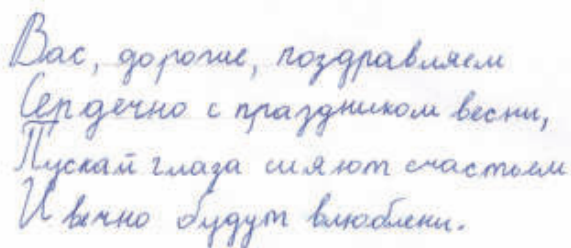 Вас, дорогие, поздравляем
Сердечно с праздником весны,
Пускай глаза сияют счастьем
И вечно будут влюблены.